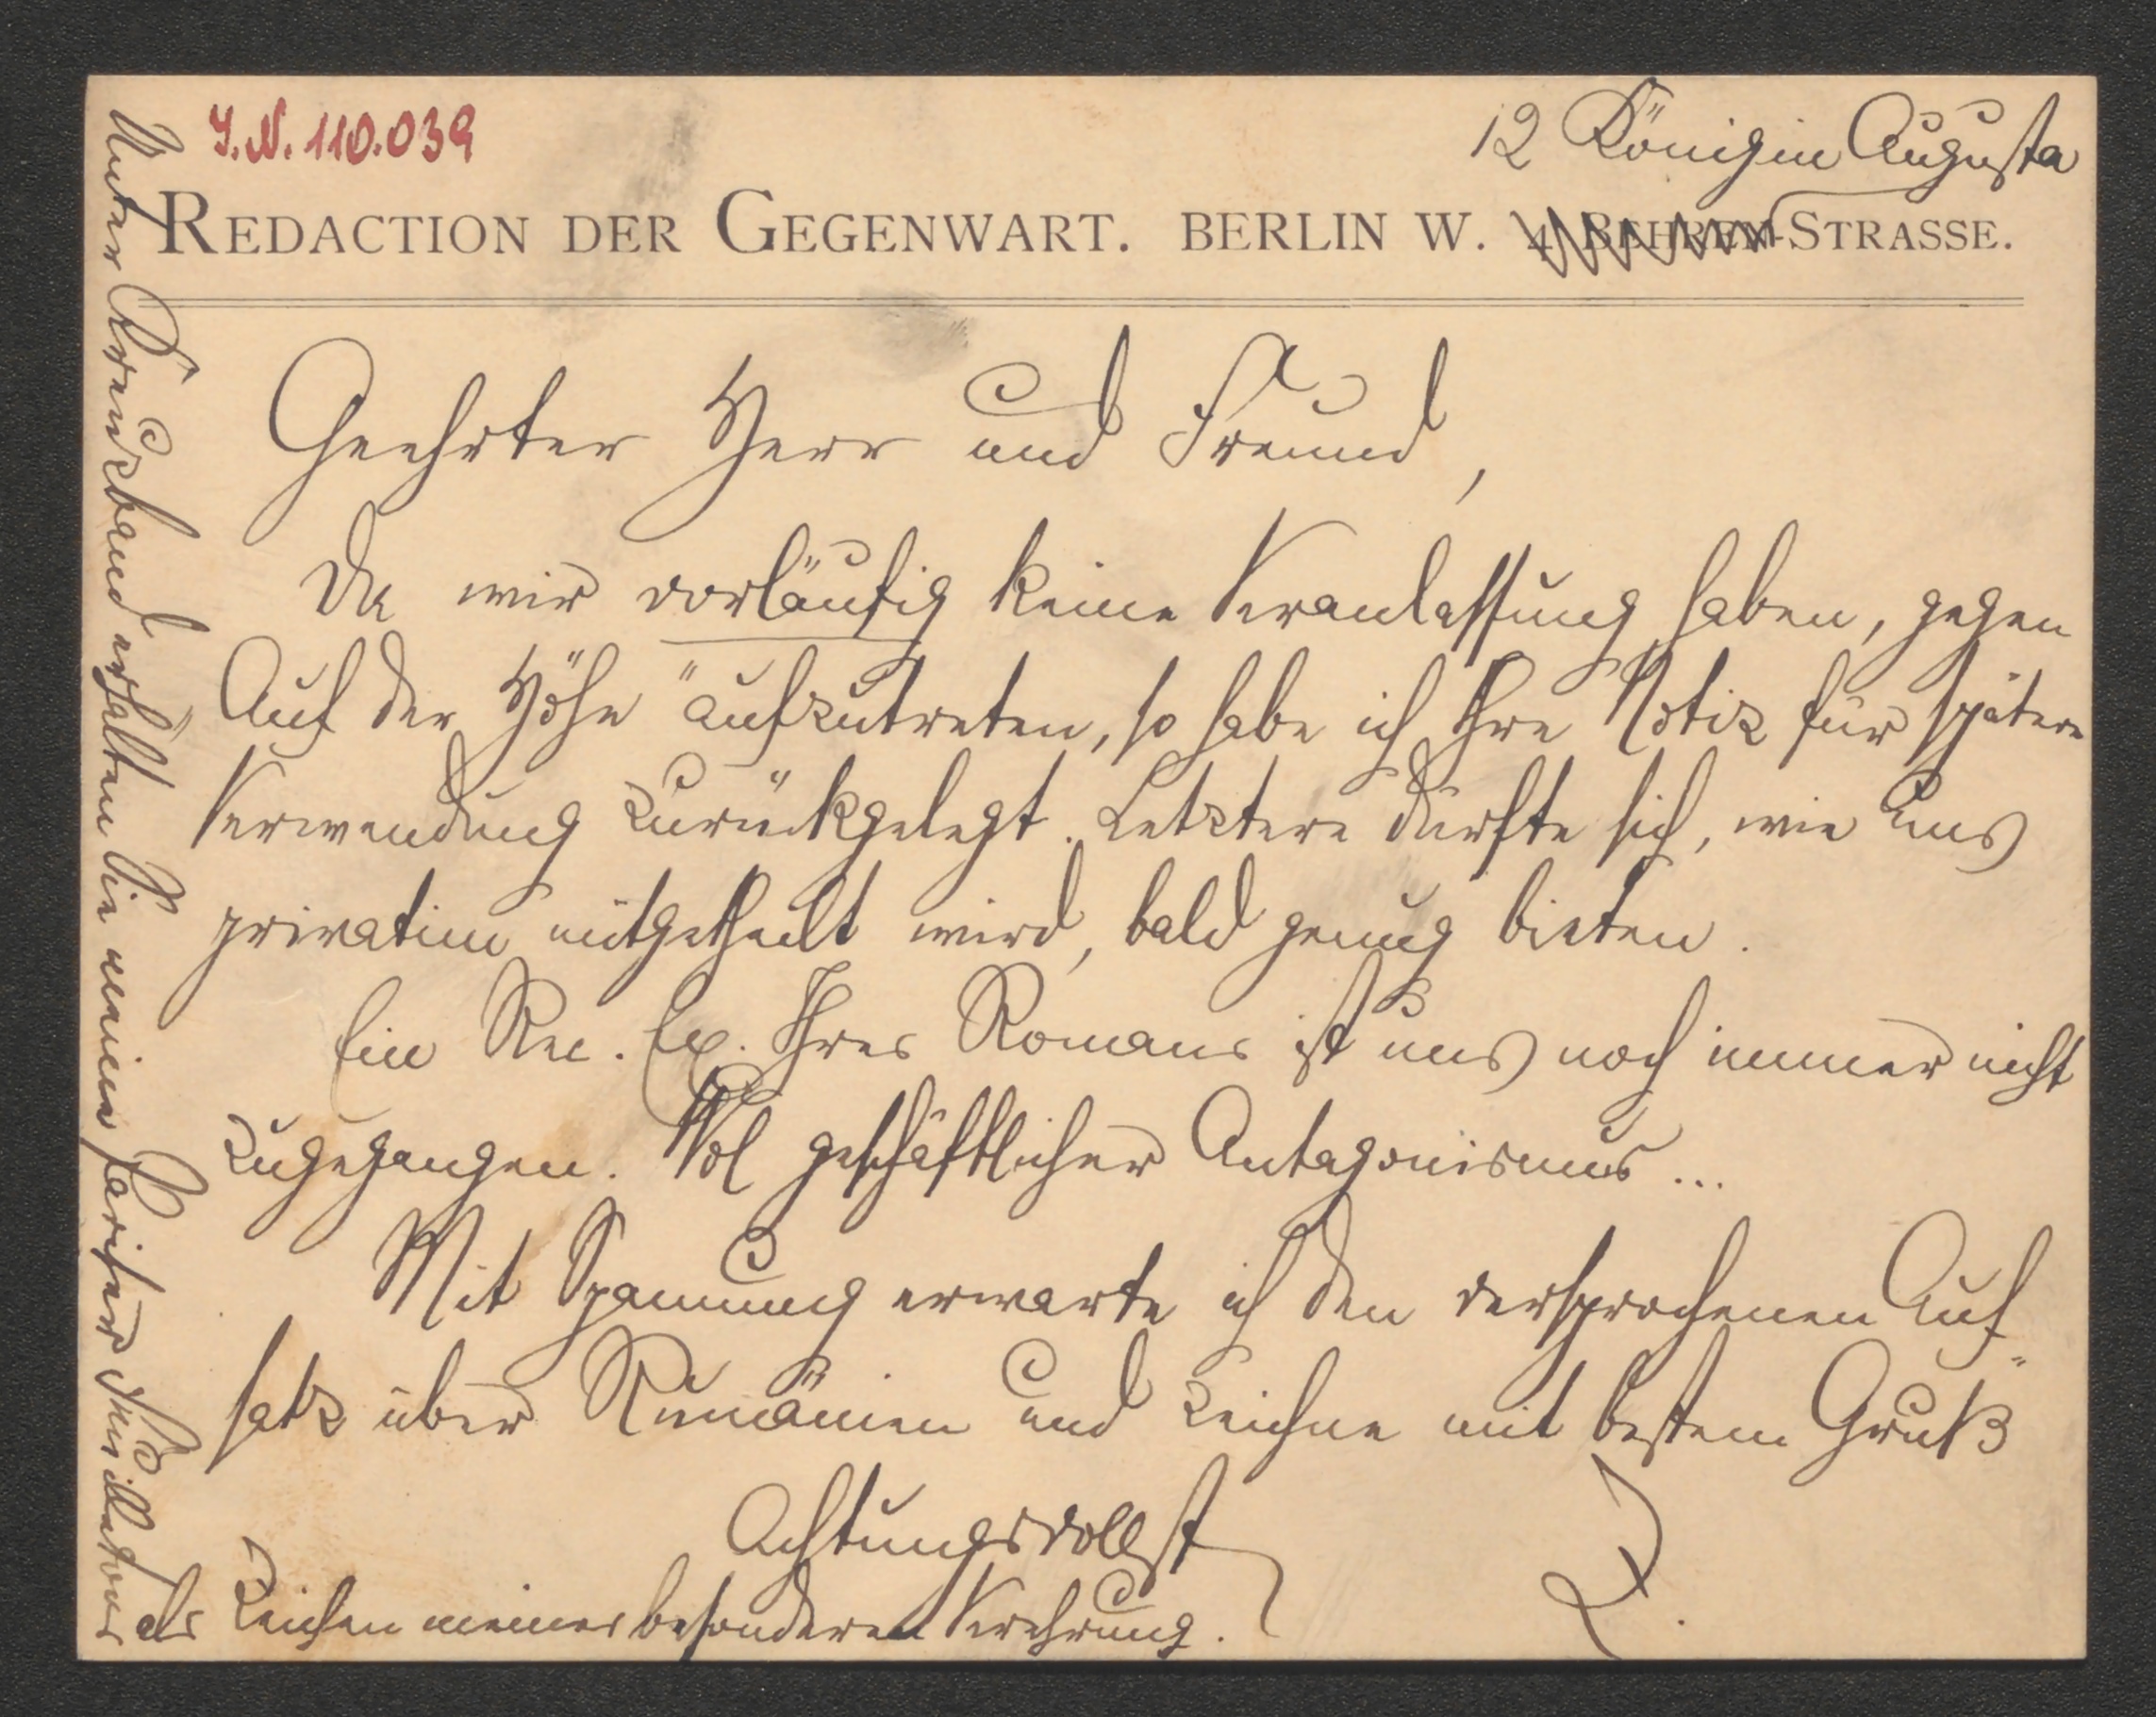 J.N. 110.039
12 Königin Augusta
REDACTION DER GEGENWART. BERLIN W. 4 BEHREN-STRASSE.
Geehrter Herr und Freund,
Da wir vorläufig keine Veranlassung haben, gegen
„Auf der Höhe" aufzutreten, so habe ich Ihre Notiz für spätere
Verwendung zurückgelegt. Letztere dürfte sich, wie uns
privatim mitgetheilt wird, bald genug bieten.
Ein Rec. Ex. Ihres Romans ist uns noch immer nicht
zugegangen. Wol geschäftlicher Antagonismus...
Mit Spannung erwarte ich den versprochenen Auf-
satz über Rumänien und zeichne mit bestem Gruß
Achtungsvollst
Z.
Unter Kreuzband erhalten Sie meine Pariser
als Zeichen meiner besonderen Verehrung.